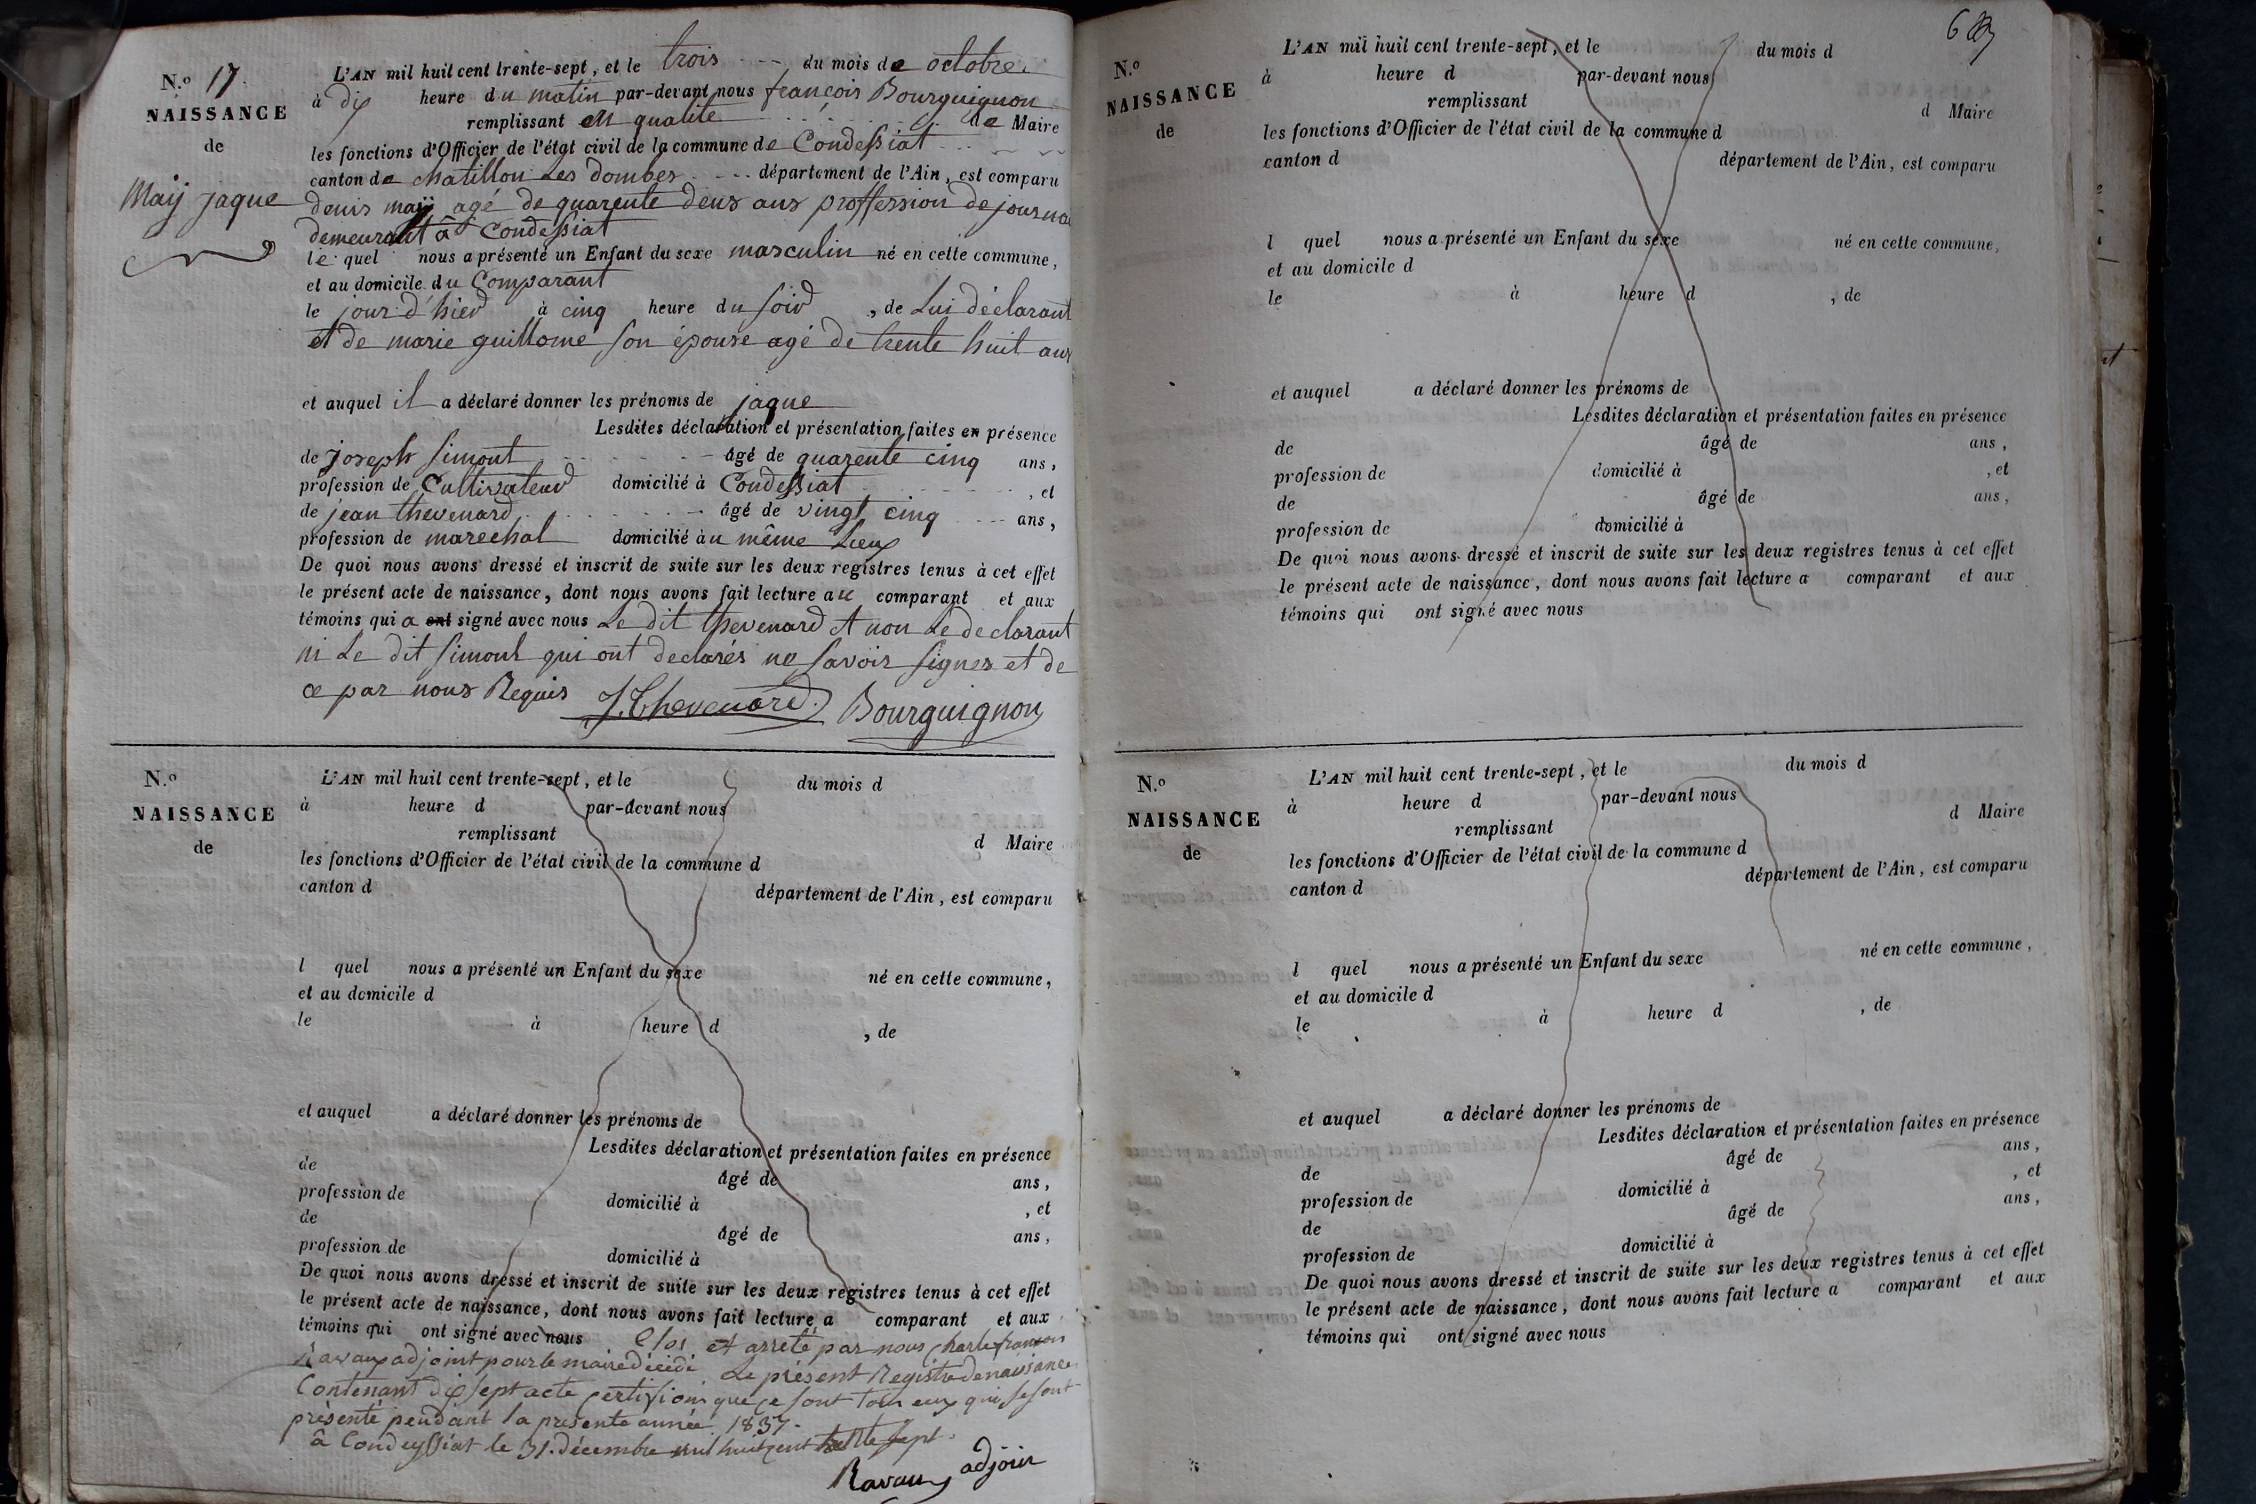 N.º 17.
NAISSANCE
de
Maÿ jaque
L'AN mil huit cent trente-sept, et le trois du mois de octobre.
à dix heure du matin par-devant nous françois Bourguignon
remplissant en qualité de Maire
les fonctions d'Officier de l'état civil de la commune de Condessiat
canton de chatillon Les dombes département de l'Ain, est comparu
denis maÿ agé de quarente deux ans proffession de journa
demeurant à Condessiat
le quel nous a présenté un Enfant du sexe masculin né en cette commune,
et au domicile du Comparant
le jour d'hier à cinq heure du soir, de Lui déclarant
et de marie guillome son épouse agé de trente huit ans
et auquel il a déclaré donner les prénoms de jaque
Lesdites déclaration et présentation faites en présence
de joseph simont âgé de quarente cinq ans,
profession de Cultivateur domicilié à Condessiat, et
de jean thevenard âgé de vingt cinq ans,
profession de marechal domicilié àu même Lieu
De quoi nous avons dressé et inscrit de suite sur les deux registres tenus à cet effet
le présent acte de naissance, dont nous avons fait lecture au comparant et aux
témoins qui a ont signé avec nous Le dit thevenard et non Le declarant
ni Le dit simont qui ont declarés ne savoir signer et de
ce par nous Requis J. Thevenard. Bourguignon
N.º
NAISSANCE
de
L'AN mil huit cent trente-sept, et le du mois d
à heure d par-devant nous
remplissant d Maire
les fonctions d'Officier de l'état civil de la commune d
canton d département de l'Ain, est comparu
l quel nous a présenté un Enfant du sexe né en cette commune,
et au domicile d
le à heure d , de
et auquel a déclaré donner les prénoms de
Lesdites déclaration et présentation faites en présence
de âgé de ans,
profession de domicilié à , et
de âgé de ans,
profession de domicilié à
De quoi nous avons dressé et inscrit de suite sur les deux registres tenus à cet effet
le présent acte de naissance, dont nous avons fait lecture a comparant et aux
témoins qui ont signé avec nous Clos et arrêté par nous charle françois
Ravaux adjoint pour le maire décédé Le présent Registre de naissance
Contenant dix sept acte certifions que ce sont tous ceux qui se sont
présenté pendant la présente année 1837.
à Condeyssiat le 31. décembre mil huit cent trente sept.
Ravaux adjoin
6
N.º
NAISSANCE
de
L'AN mil huit cent trente-sept, et le du mois d
à heure d par-devant nous
remplissant d Maire
les fonctions d'Officier de l'état civil de la commune d
canton d département de l'Ain, est comparu
l quel nous a présenté un Enfant du sexe né en cette commune,
et au domicile d
le à heure d , de
et auquel a déclaré donner les prénoms de
Lesdites déclaration et présentation faites en présence
de âgé de ans,
profession de domicilié à , et
de âgé de ans,
profession de domicilié à
De quoi nous avons dressé et inscrit de suite sur les deux registres tenus à cet effet
le présent acte de naissance, dont nous avons fait lecture a comparant et aux
témoins qui ont signé avec nous
N.º
NAISSANCE
de
L'AN mil huit cent trente-sept, et le du mois d
à heure d par-devant nous
remplissant d Maire
les fonctions d'Officier de l'état civil de la commune d
canton d département de l'Ain, est comparu
l quel nous a présenté un Enfant du sexe né en cette commune,
et au domicile d
le à heure d , de
et auquel a déclaré donner les prénoms de
Lesdites déclaration et présentation faites en présence
de âgé de ans,
profession de domicilié à , et
de âgé de ans,
profession de domicilié à
De quoi nous avons dressé et inscrit de suite sur les deux registres tenus à cet effet
le présent acte de naissance, dont nous avons fait lecture a comparant et aux
témoins qui ont signé avec nous